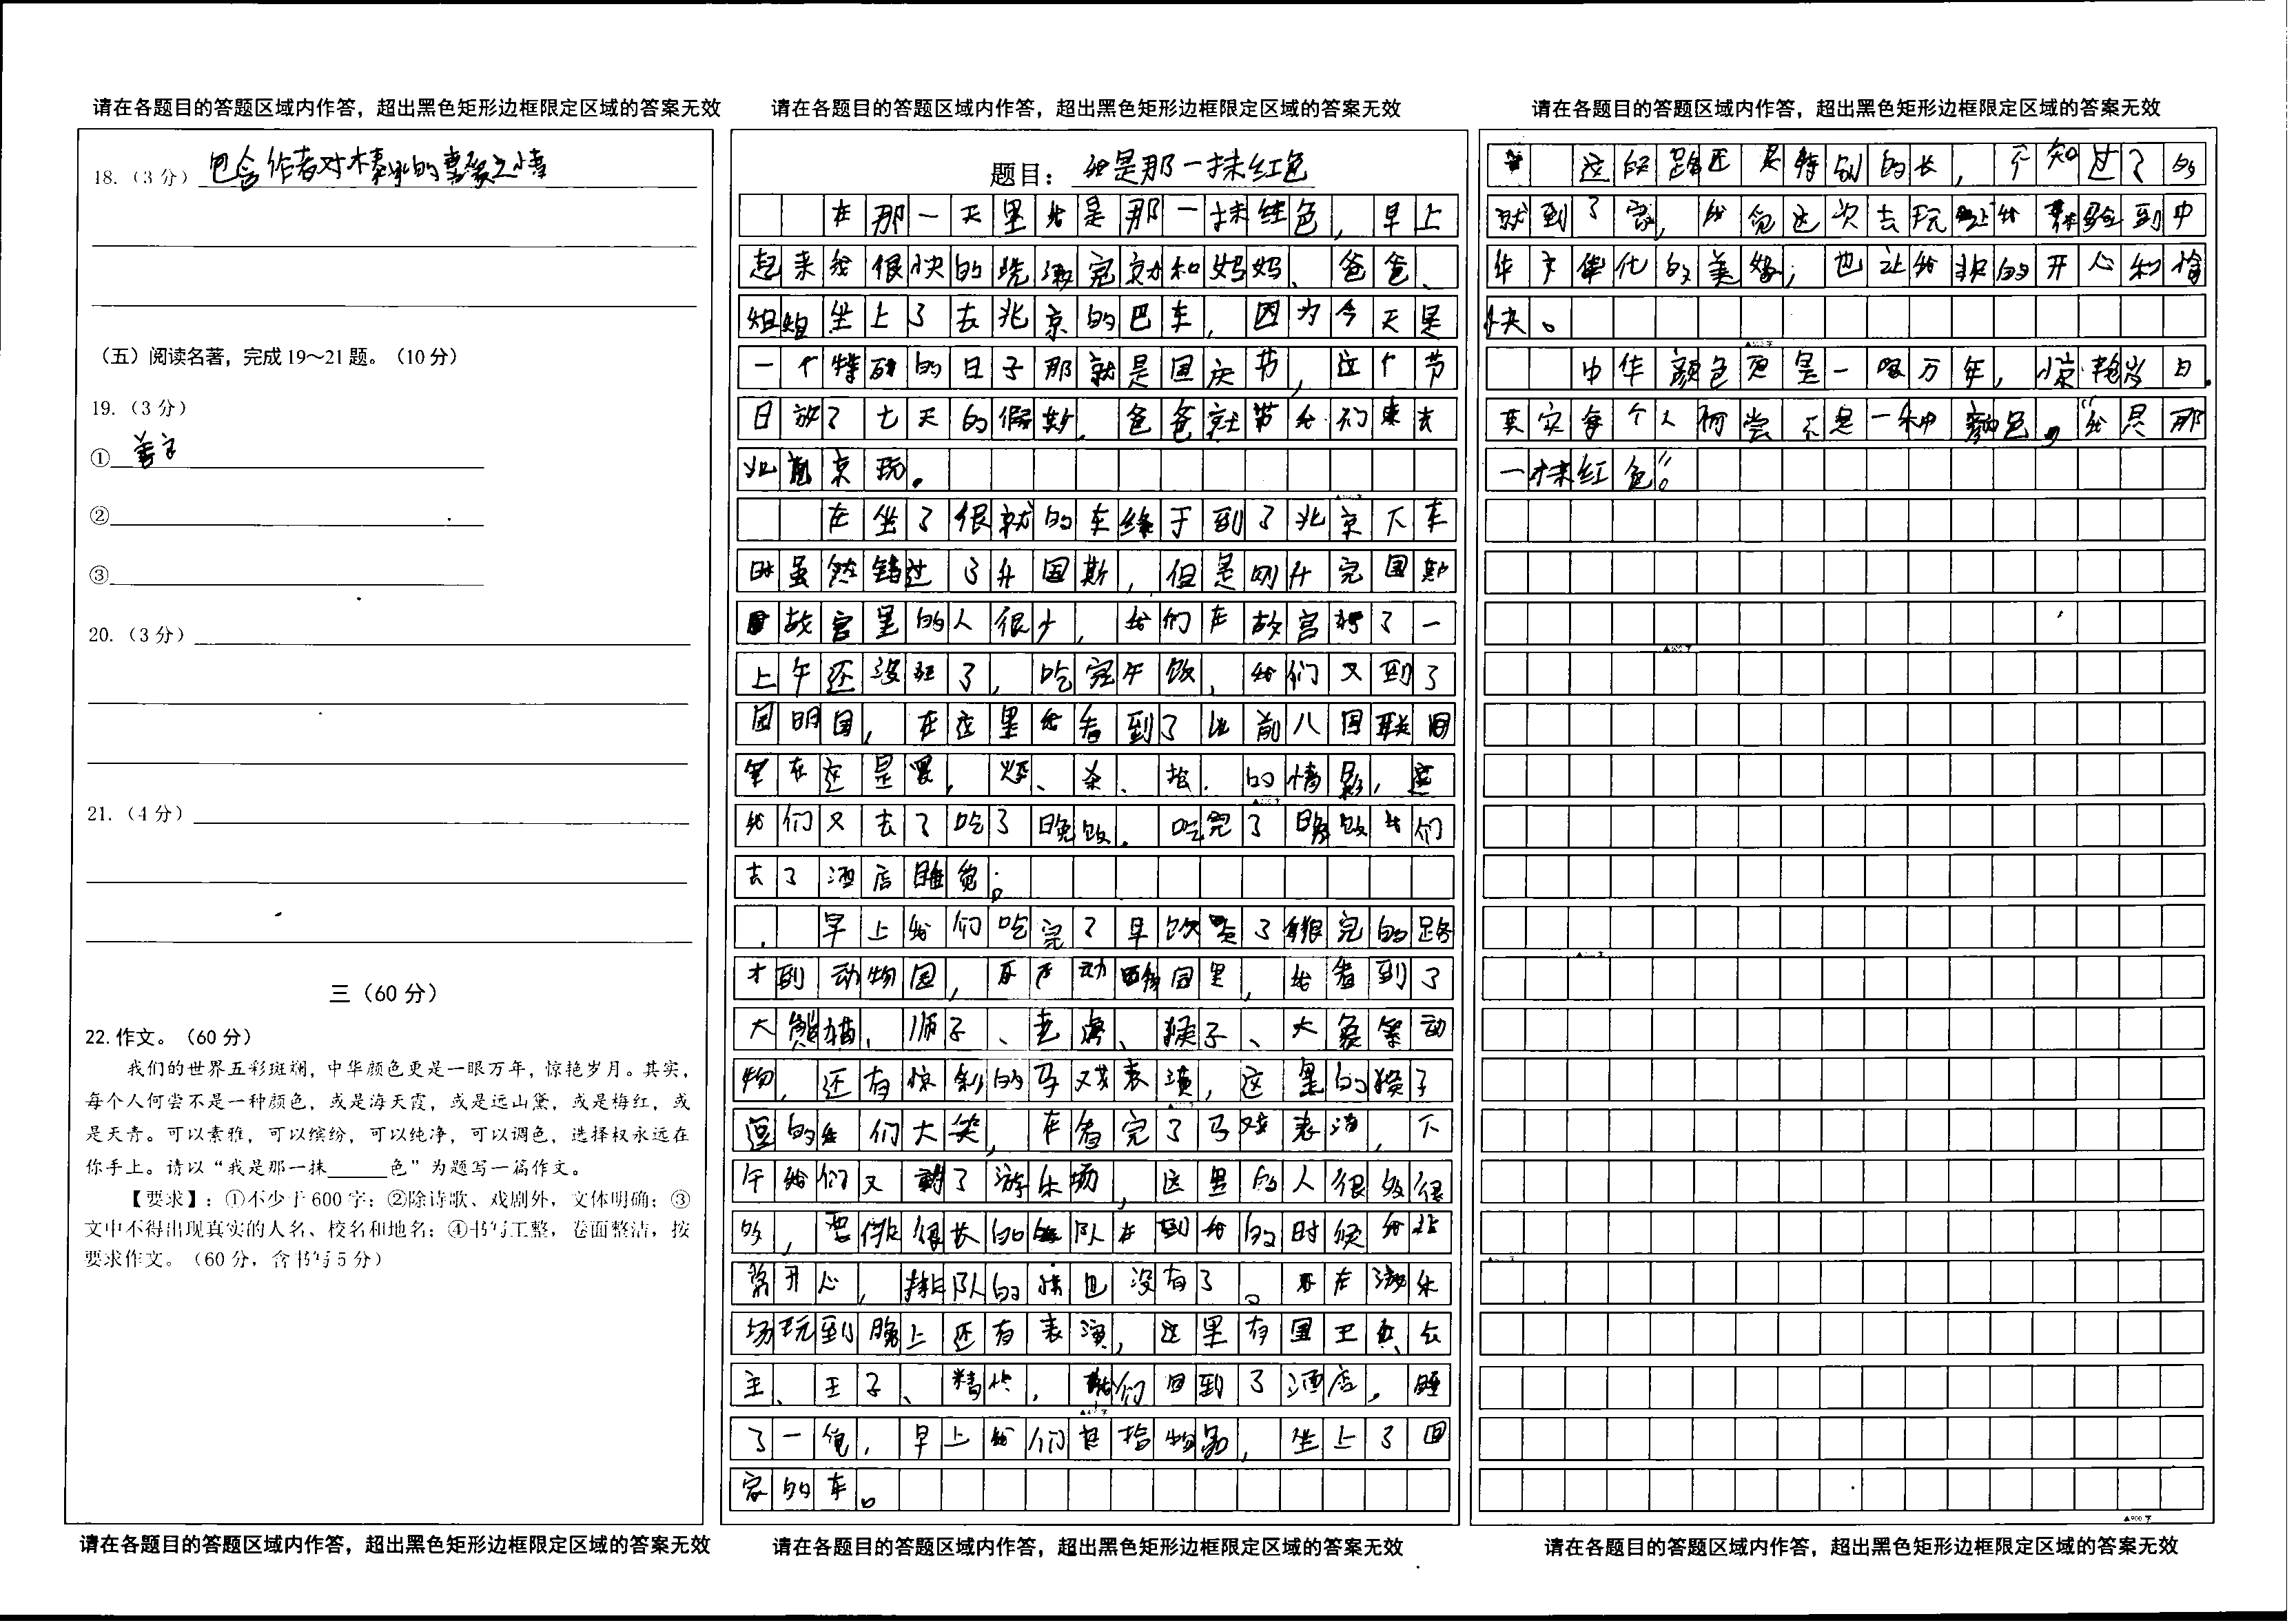 请在各题目的答题区域内作答，超出黑色矩形边框限定区域的答案无效
18.（3分）包含作者对木槿的喜爱之情
（五）阅读名著，完成19～21题。（10分）
19.（3分）
①
②
③
20.（3分）
21.（4分）
三（60分）
22.作文。（60分）
我们的世界五彩斑斓，中华颜色更是一眼万年，惊艳岁月。其实，
每个人何尝不是一种颜色，或是海天霞，或是远山黛，或是梅红，或
是天青。可以素雅，可以缤纷，可以纯净，可以调色，选择权永远在
你手上。请以“我是那一抹______色”为题写一篇作文。
【要求】：①不少于600字；②除诗歌、戏剧外，文体明确；③
文中不得出现真实的人名、校名和地名；④书写工整，卷面整洁，按
要求作文。（60分，含书写5分）
请在各题目的答题区域内作答，超出黑色矩形边框限定区域的答案无效
请在各题目的答题区域内作答，超出黑色矩形边框限定区域的答案无效
题目：我是那一抹红色
在那一天里我是那一抹红色，早上
起来我很快的洗漱完就和妈妈、爸爸、
姐姐坐上了去北京的巴车，因为今天是
一个特殊的日子那就是国庆节，这个节
日放了七天的假期，爸爸就带我们来去
北京玩。
在坐了很就的车终于到了北京下车
时虽然错过了升国斯，但是刚升完国斯
故宫里的人很少，我们在故宫了一
上午还没玩了，吃完午饭，我们又到了
园明园，在这里我看到了以前八国联国
军在这里，烧、杀、抢、的情影，
我们又去了吃了晚饭，吃完了晚饭我们
去了酒店睡觉。
早上我们吃完了早饭了很完的路
才到动物园，在动物园里，我看到了
大熊猫、师子、老虎、猴子、大象等动
物，还有惊刺的马戏表演，这里的猴子
逗的我们大笑，在看完了马戏表演，下
午我们又了游乐场，这里的人很多很
多，要排很长的队在到我的时候我非
常开心，排队的也没有了。在游乐
场玩到晚上还有表演，这里有国王、公
主、王子、精灵，我们回到了酒店，睡
了一觉，早上我们拾物品，坐上了回
家的车。
请在各题目的答题区域内作答，超出黑色矩形边框限定区域的答案无效
请在各题目的答题区域内作答，超出黑色矩形边框限定区域的答案无效
这的路还是特别的长，不知过了的
就到了家，我觉这次去玩让我体验到中
华文华化的美好，也让我很的开心和愉
快。
中华颜色更是一眼万年，惊艳岁日。
其实每个人何尝不是一种颜色。“我是那
一抹红色”。
▲900字
请在各题目的答题区域内作答，超出黑色矩形边框限定区域的答案无效